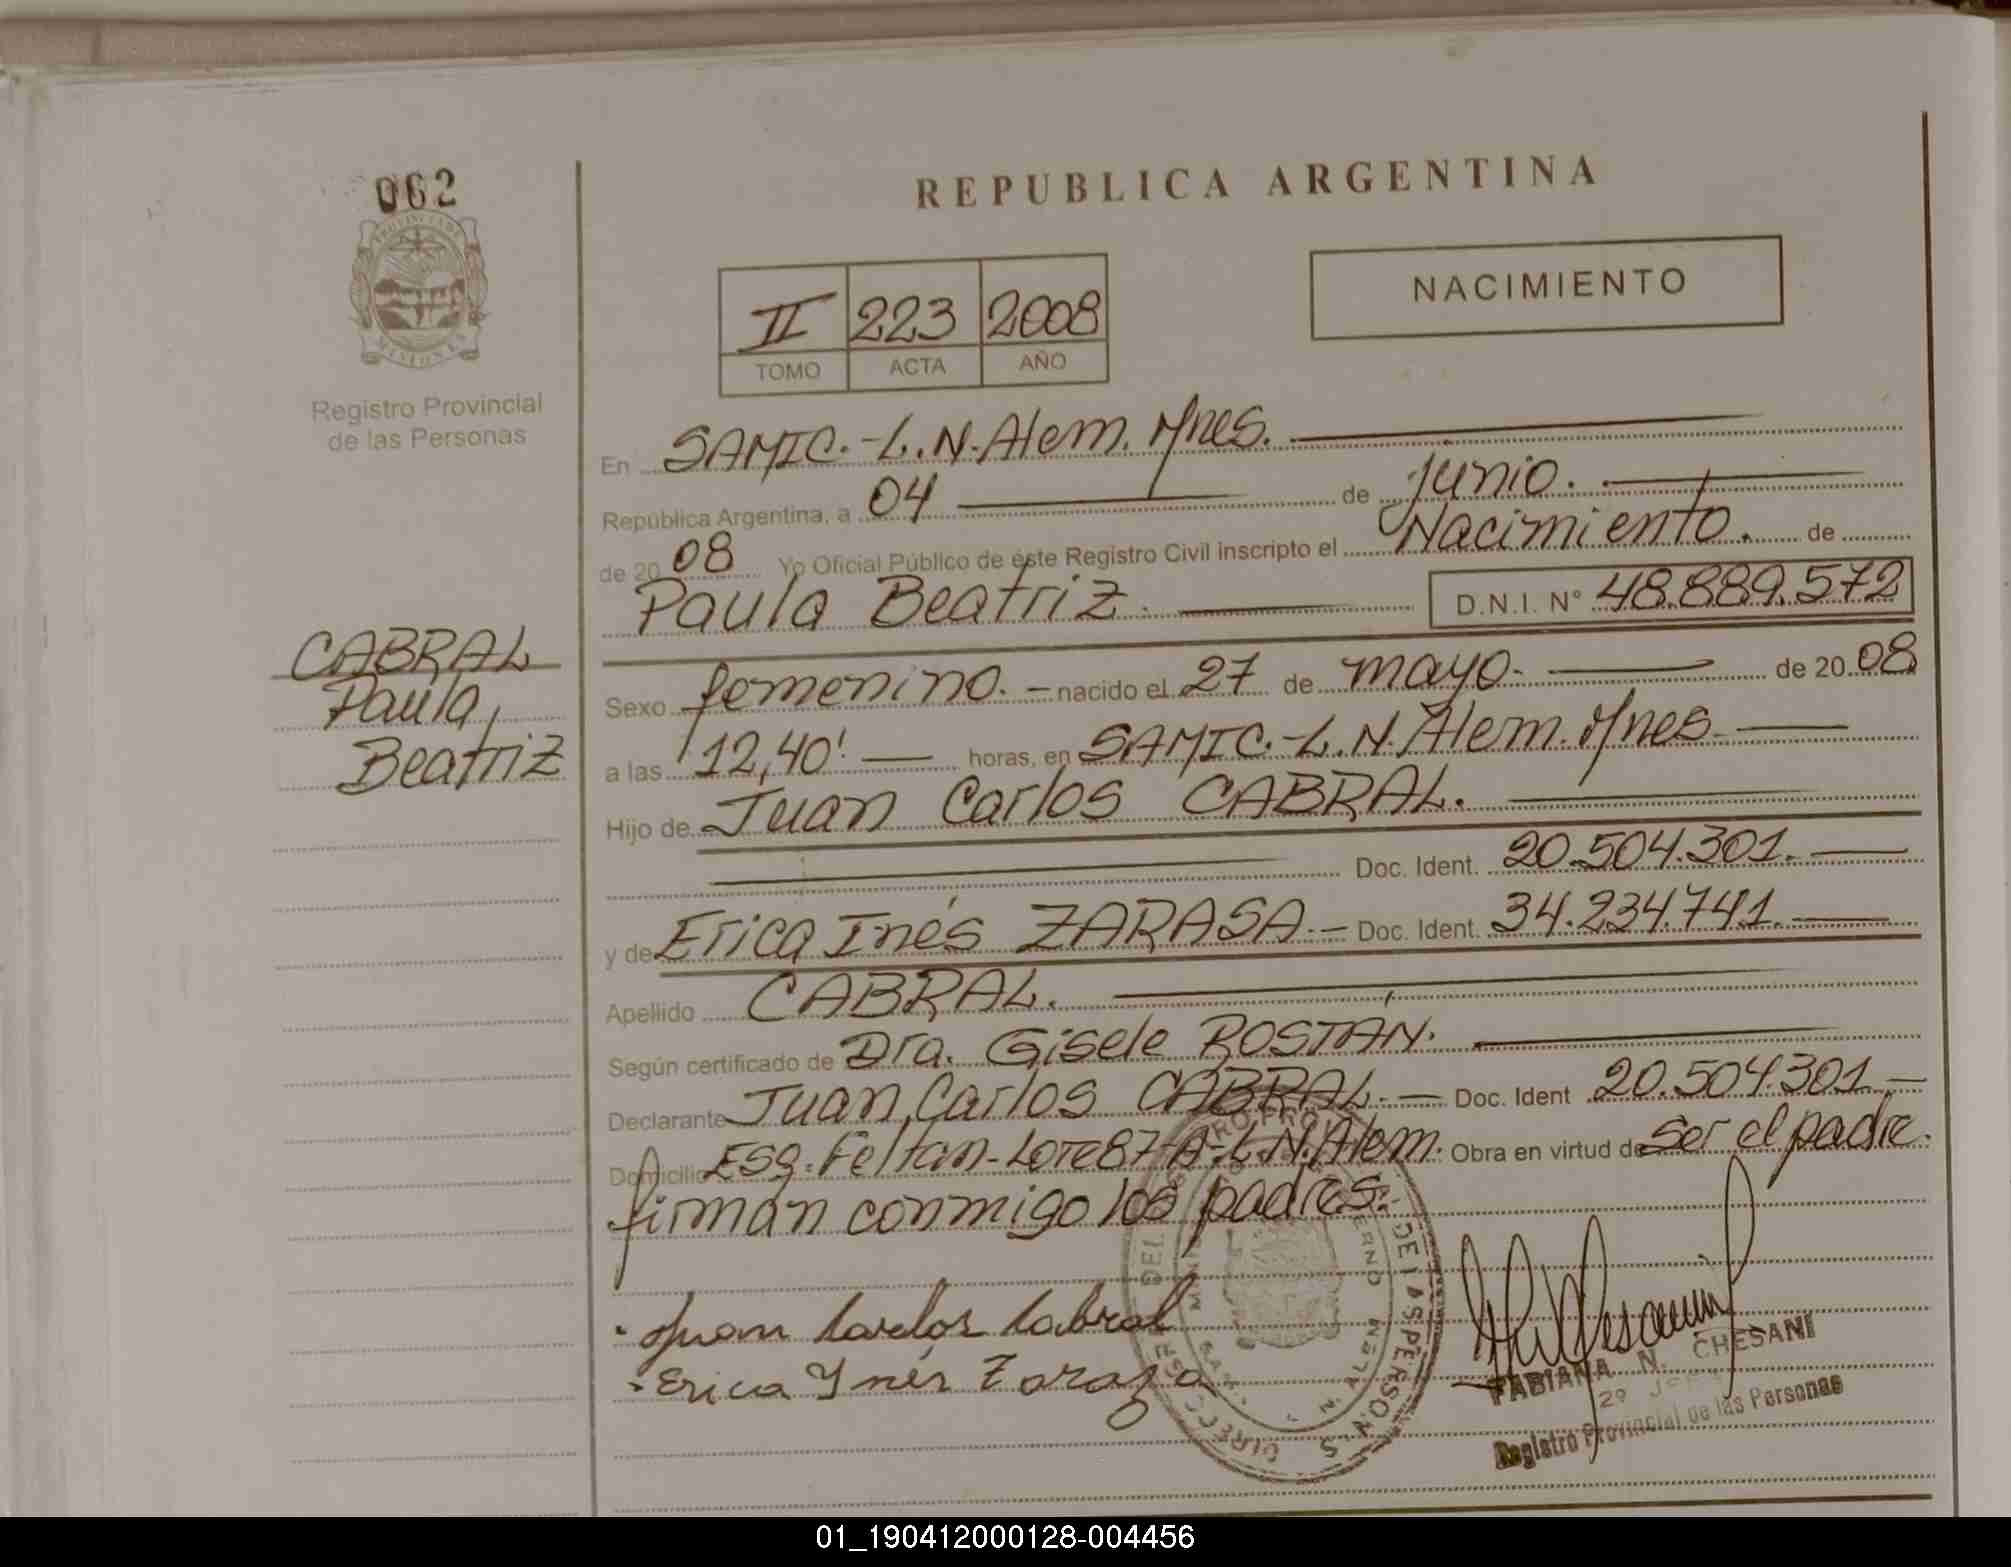 062
PROVINCIA DE
MISIONES
Registro Provincial
de las Personas
CABRAL
Paula
Beatriz
REPUBLICA ARGENTINA
II 223 2008
TOMO ACTA AÑO
NACIMIENTO
En SAMIC.-L.N.Alem. Mnes.
República Argentina, a 04 de junio.
de 20 08 Yo Oficial Público de éste Registro Civil inscripto el Nacimiento. de
Paula Beatriz. D.N.I. N° 48.889.572
Sexo femenino. nacido el 27 de mayo. de 20 08
a las 12,40' horas, en SAMIC.-L.N.Alem. Mnes.
Hijo de Juan Carlos CABRAL.
Doc. Ident. 20.504.301.
y de Erica Inés ZARASA.- Doc. Ident. 34.234.741.
Apellido CABRAL.
Según certificado de Dra. Gisele ROSTÁN.
Declarante Juan Carlos CABRAL.- Doc. Ident 20.504.301.-
Domicilio Lote 87-A-L.N.Alem. Obra en virtud de ser el padre.
firman conmigo los padres.
Juan Carlos Cabral
Erica Ynés Zaraza
FABIANA N. CHESANI
Registro Provincial de las Personas
01_190412000128-004456